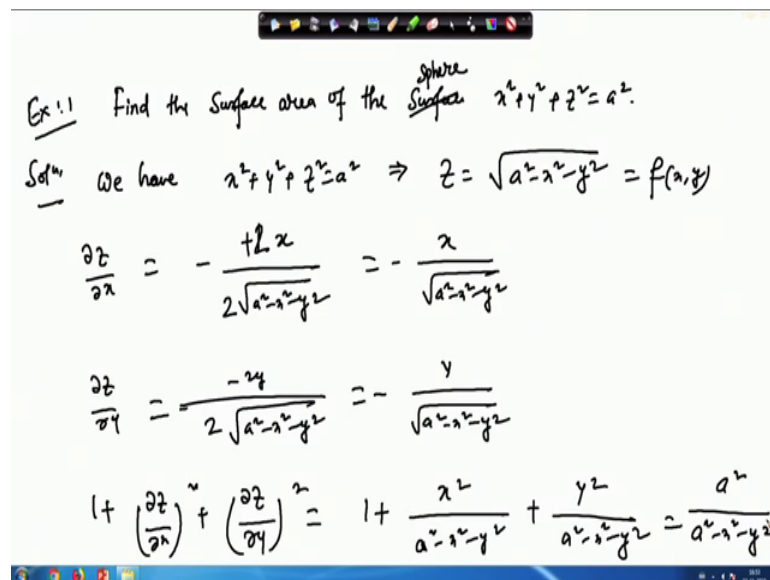 Ex:1 Find the Surface area of the ~~Surface~~ sphere x²+y²+z²=a².
Solⁿ, We have x²+y²+z²=a² ⇒ z = √(a²-x²-y²) = f(x,y)
∂z/∂x = - +2x/(2√(a²-x²-y²)) = - x/√(a²-x²-y²)
∂z/∂y = -2y/(2√(a²-x²-y²)) = - y/√(a²-x²-y²)
1+ (∂z/∂x)² + (∂z/∂y)² = 1+ x²/(a²-x²-y²) + y²/(a²-x²-y²) = a²/(a²-x²-y²)